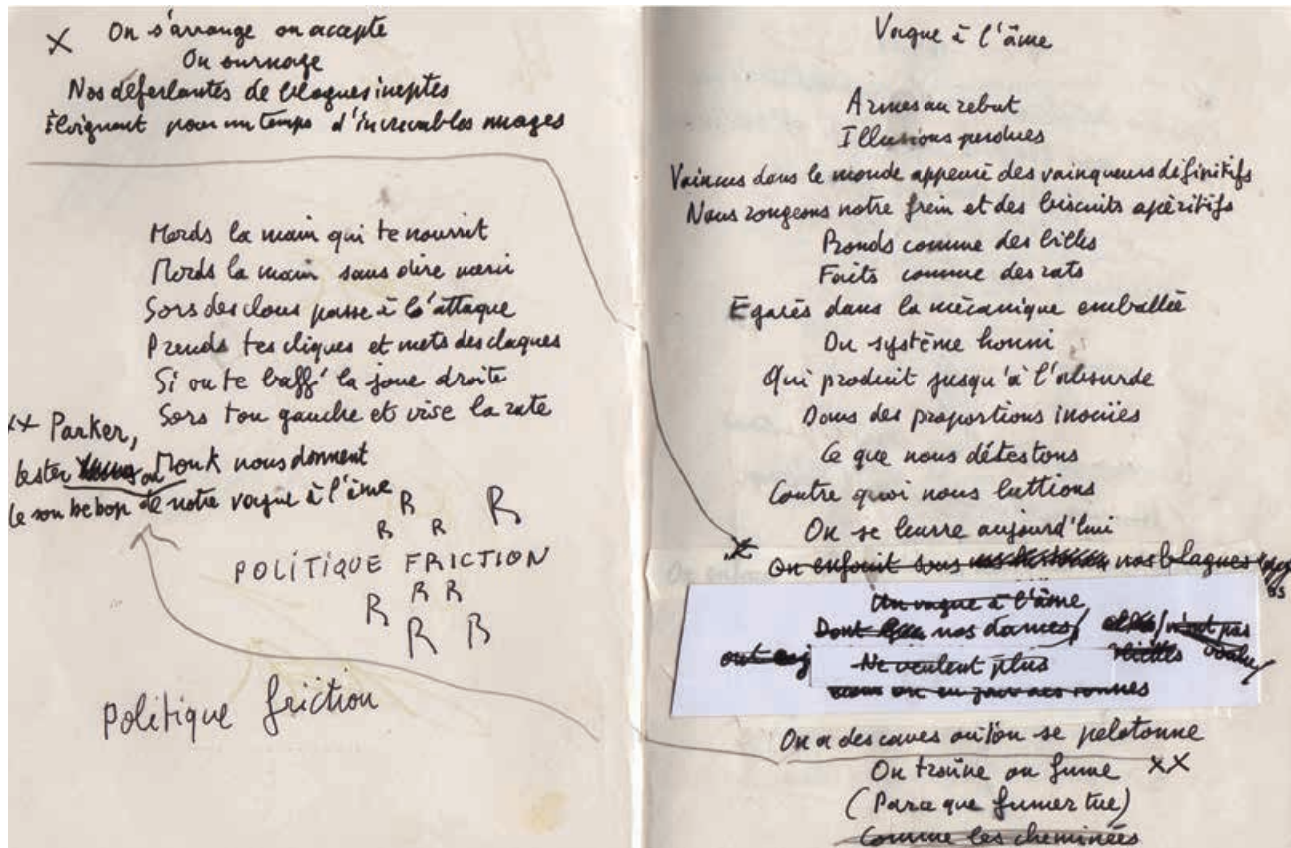 X On s'arrange on accepte
On surnage
Nos déferlantes de blagues ineptes
Éloignent pour un temps d'increvables nuages
Mords la main qui te nourrit
Mords la main sans dire merci
Sors des clous passe à l'attaque
Prends tes cliques et mets des claques
Si on te baff' la joue droite
Sors ton gauche et vise la rate
XX Parker,
Lester ou Monk nous donnent
Le son bebop de notre vague à l'âme
R R
R R
POLITIQUE FRICTION
R R R
R R
Politique friction
Vague à l'âme
Armes au rebut
Illusions perdues
Vaincus dans le monde appeuré des vainqueurs définitifs
Nous rongeons notre frein et des biscuits apéritifs
Ronds comme des billes
Faits comme des rats
Égarés dans la mécanique emballée
Du système honni
Qui produit jusqu'à l'absurde
Dans des proportions inouïes
Ce que nous détestons
Contre quoi nous luttions
On se leurre aujourd'hui
X On enfouit sous nos blagues
Un vague à l'âme
Dont nos dames n'ont pas
ont Ne veulent plus
On a des caves où l'on se pelotonne
On traîne on fume XX
(Parce que fumer tue)
Comme les cheminées